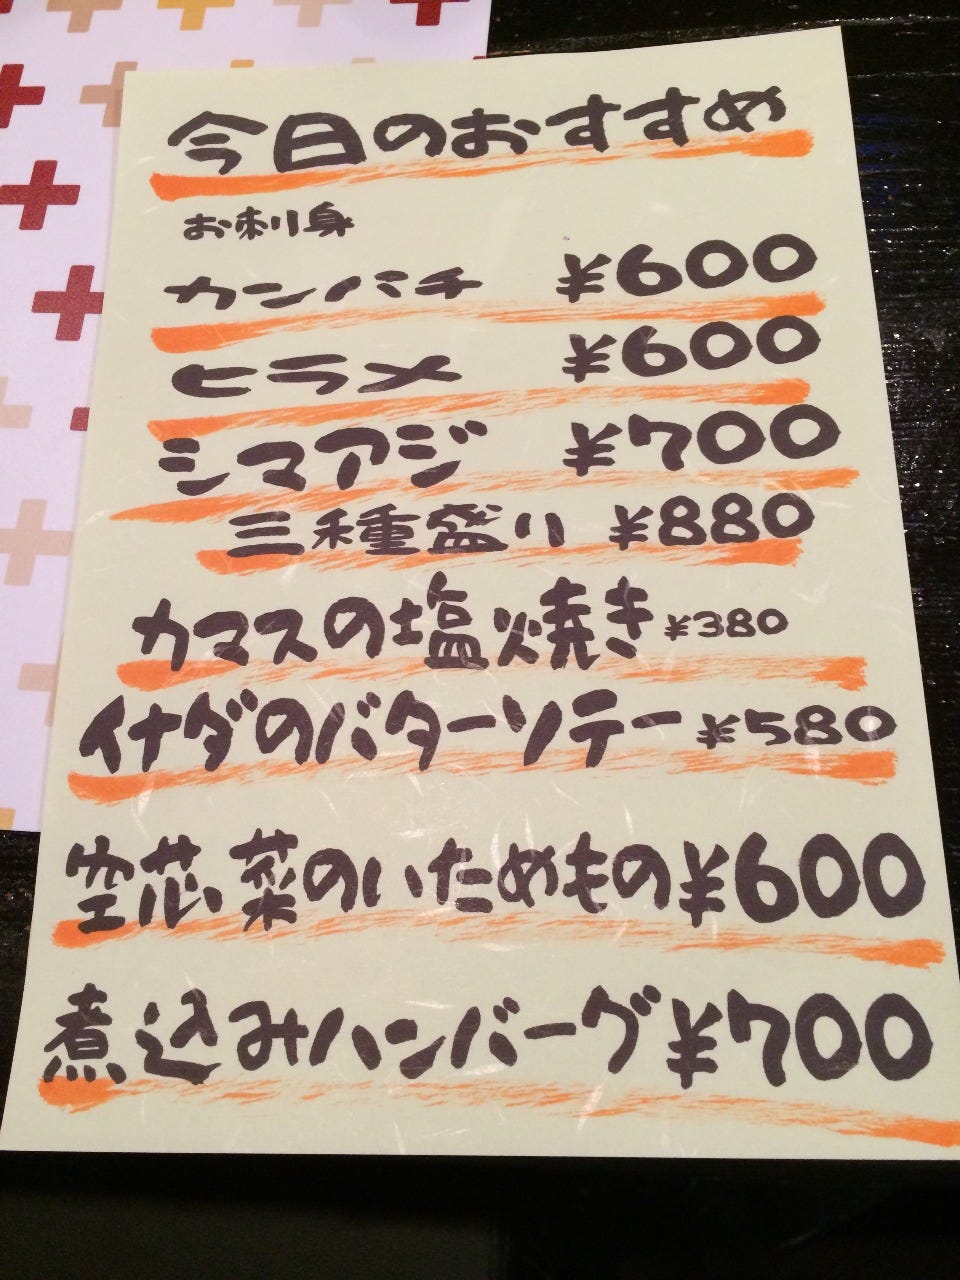 今日のおすすめ
お刺身
カンパチ ¥600
ヒラメ ¥600
シマアジ ¥700
三種盛り ¥880
カマスの塩焼き ¥380
イナダのバターソテー ¥580
空芯菜のいためもの ¥600
煮込みハンバーグ ¥700